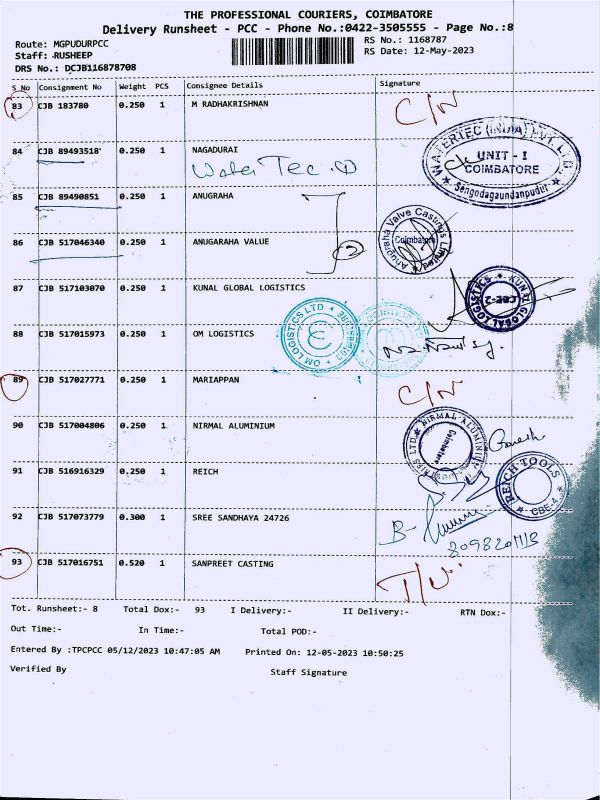 THE PROFESSIONAL COURIERS, COIMBATORE
Delivery Runsheet - PCC - Phone No.:0422-3505555 - Page No.:8
Route: MGPUDURPCC RS No.: 1168787
Staff: RUSHEEP RS Date: 12-May-2023
DRS No.: DCJB116878708
S No Consignment No Weight PCS Consignee Details Signature
83 CJB 183780 0.250 1 M RADHAKRISHNAN C/N
84 CJB 89493518 0.250 1 NAGADURAI
Water Tec
WATERTEC (INDIA) PVT. LTD.
UNIT - I
COIMBATORE
Sengodagaundanpudur
85 CJB 89490851 0.250 1 ANUGRAHA
86 CJB 517046340 0.250 1 ANUGARAHA VALUE
Anugraha Valve Castings Limited
Coimbatore
87 CJB 517103070 0.250 1 KUNAL GLOBAL LOGISTICS
KUNAL GLOBAL LOGISTICS
CBE-2
88 CJB 517015973 0.250 1 OM LOGISTICS
OM LOGISTICS LTD
89 CJB 517027771 0.250 1 MARIAPPAN C/N
90 CJB 517004806 0.250 1 NIRMAL ALUMINIUM
NIRMAL ALUMINIUM
Coimbatore
Ganesh
91 CJB 516916329 0.250 1 REICH
REICH TOOLS
CBE-4
92 CJB 517073779 0.300 1 SREE SANDHAYA 24726
93 CJB 517016751 0.520 1 SANPREET CASTING
Tot. Runsheet:- 8 Total Dox:- 93 I Delivery:- II Delivery:- RTN Dox:-
Out Time:- In Time:- Total POD:-
Entered By :TPCPCC 05/12/2023 10:47:05 AM Printed On: 12-05-2023 10:50:25
Verified By Staff Signature